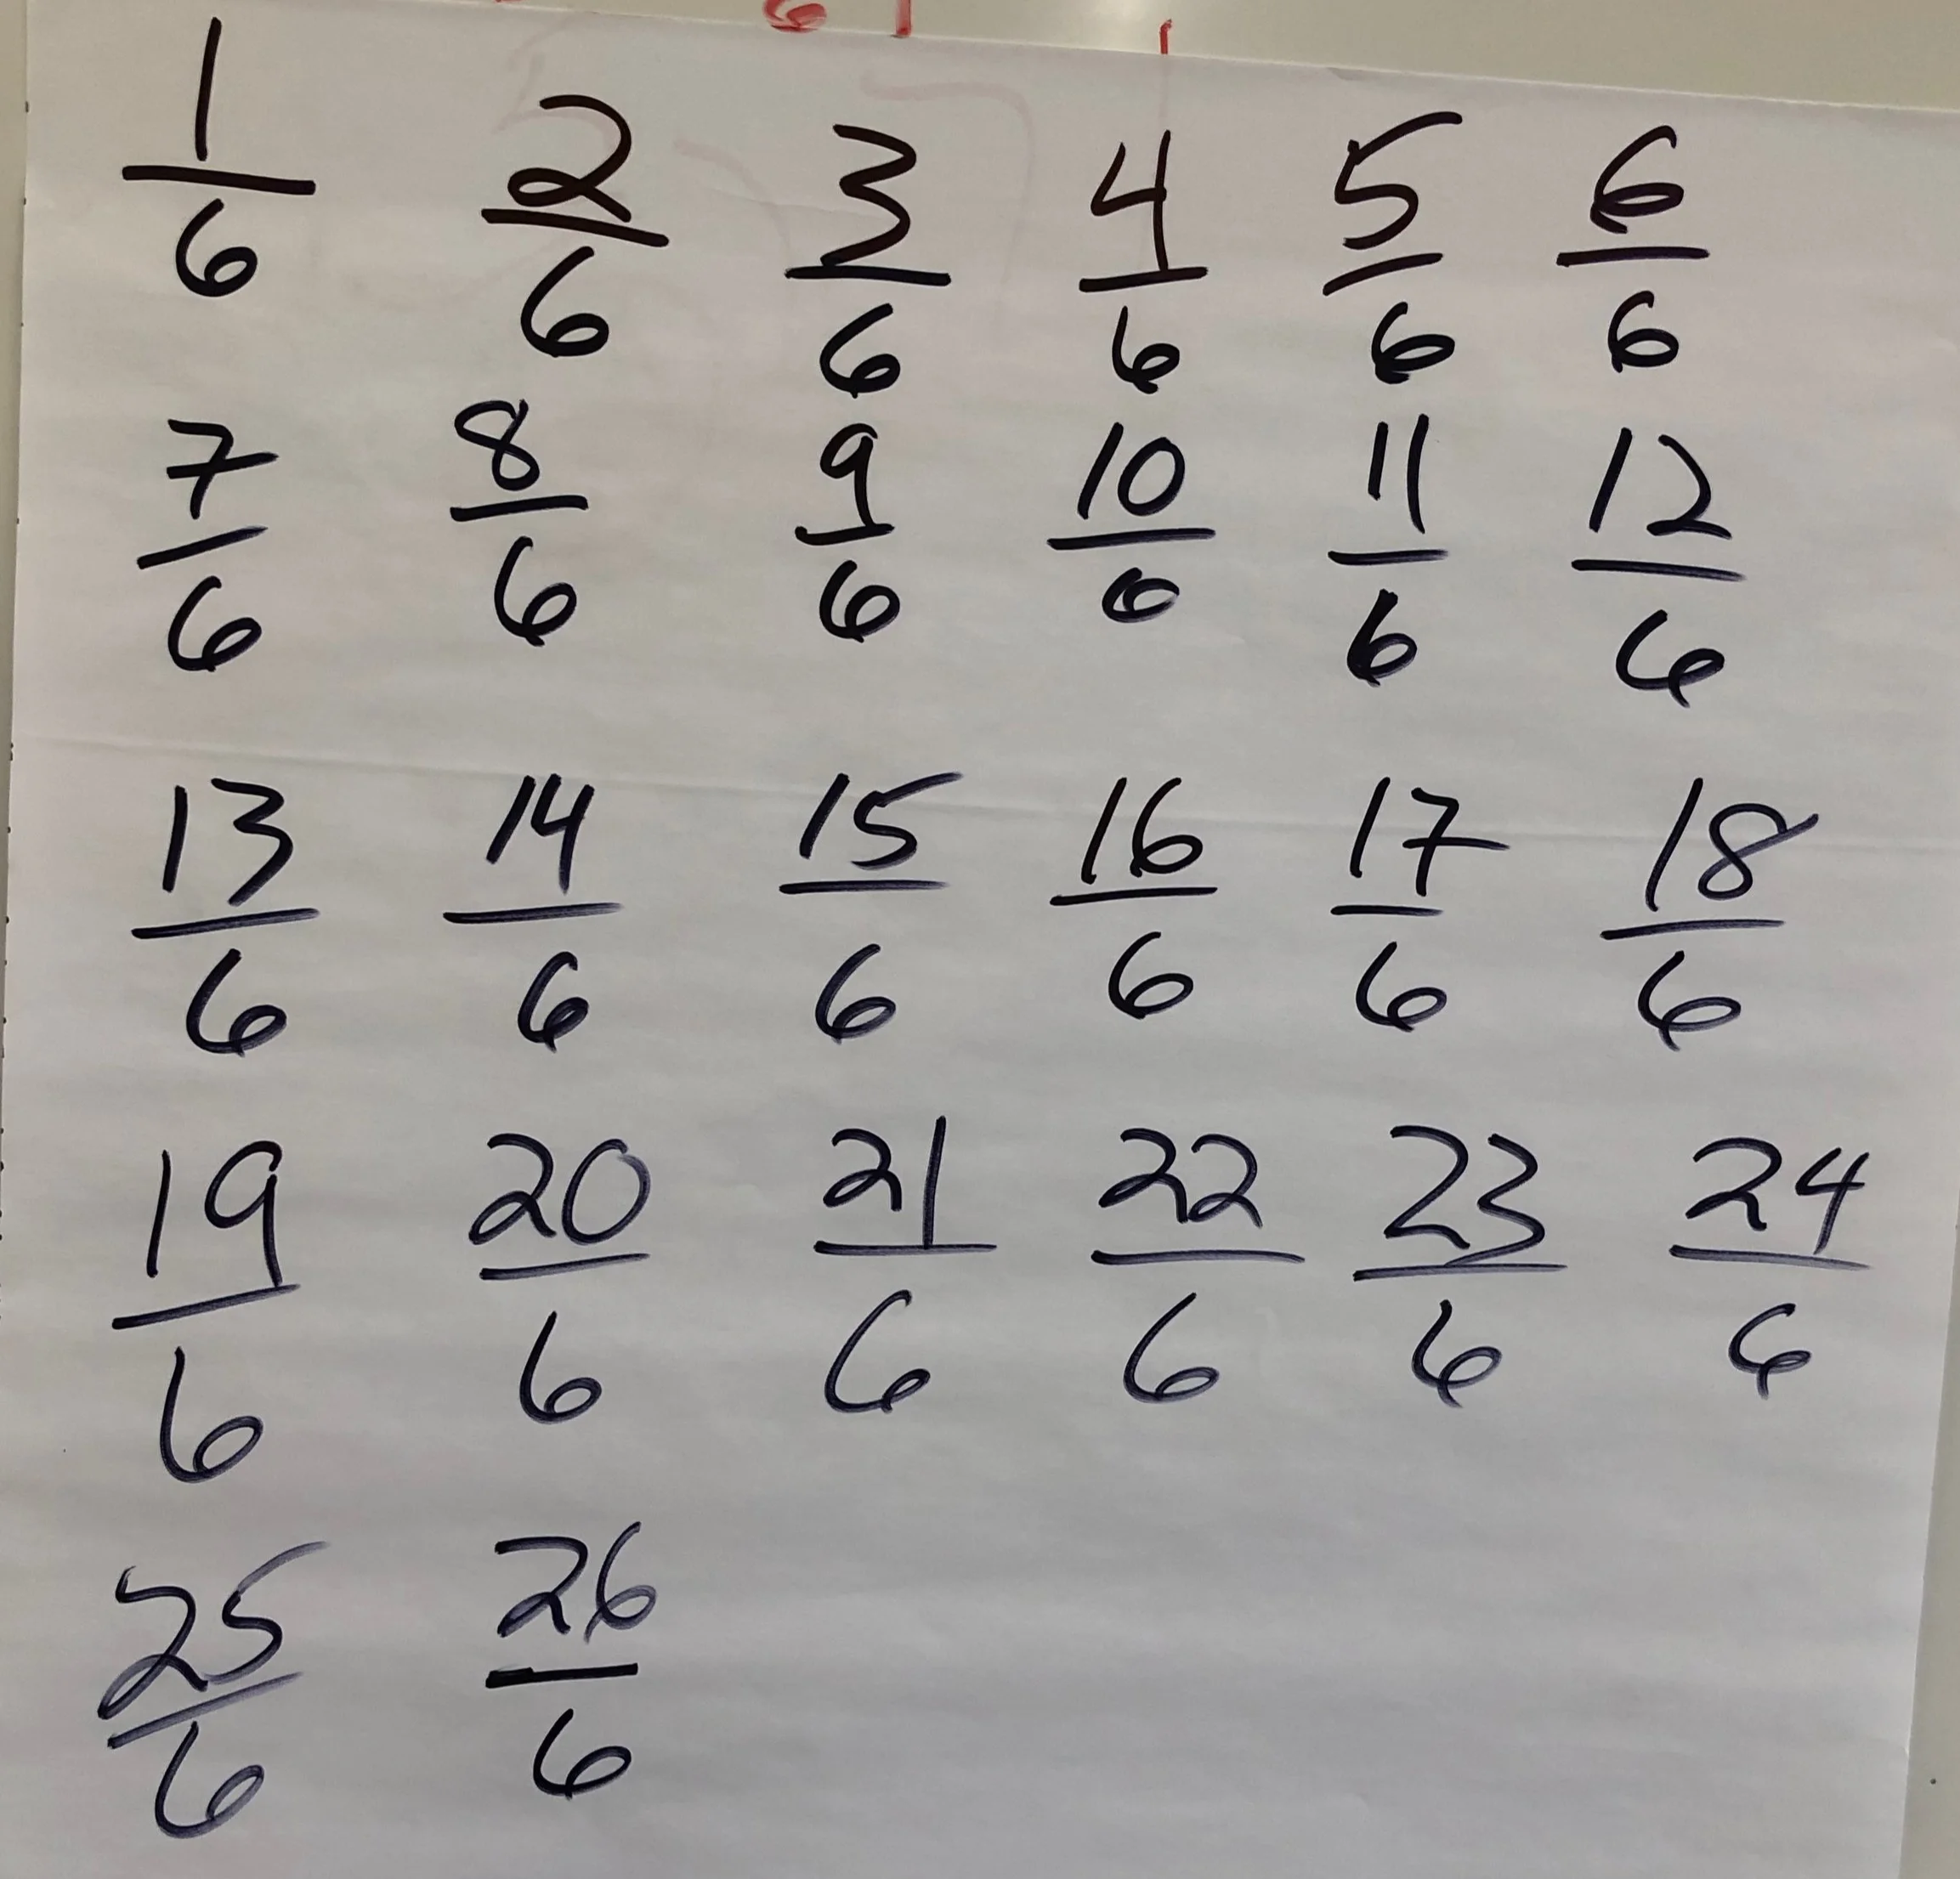 1/6 2/6 3/6 4/6 5/6 6/6
7/6 8/6 9/6 10/6 11/6 12/6
13/6 14/6 15/6 16/6 17/6 18/6
19/6 20/6 21/6 22/6 23/6 24/6
25/6 26/6